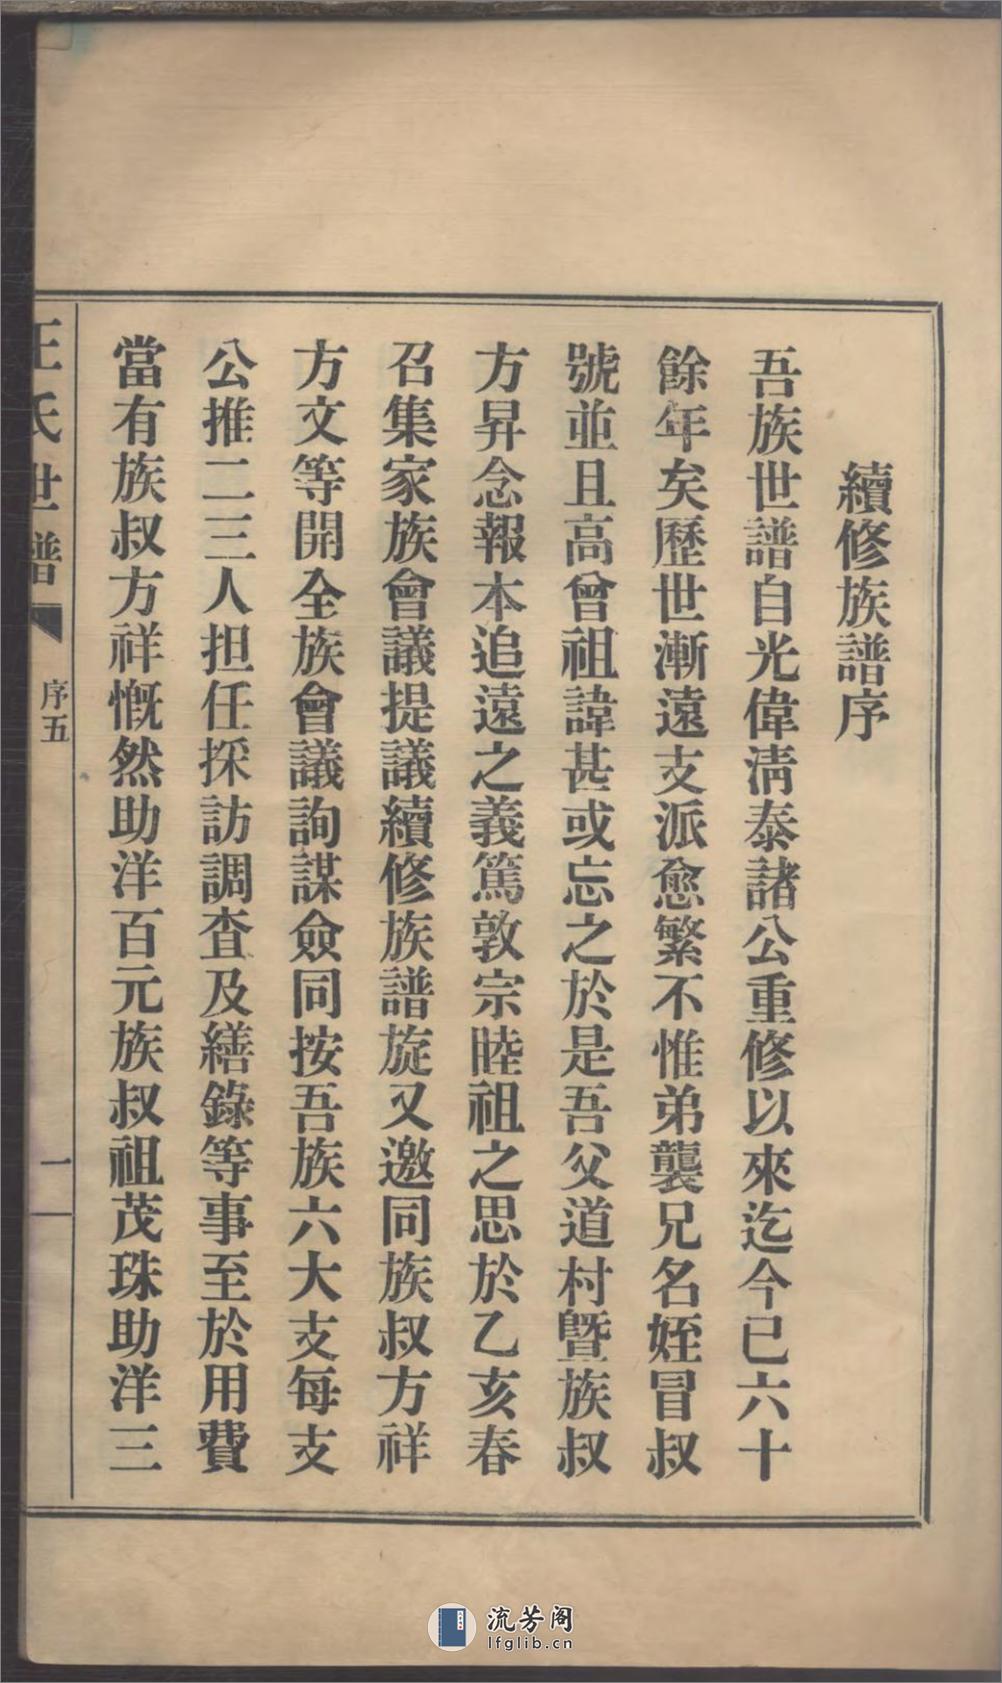 續修族譜序
吾族世譜自光偉淸泰諸公重修以來迄今已六十
餘年矣歷世漸遠支派愈繁不惟弟襲兄名姪冒叔
號並且高曾祖諱甚或忘之於是吾父道村暨族叔
方昇念報本追遠之義篤敦宗睦祖之思於乙亥春
召集家族會議提議續修族譜旋又邀同族叔方祥
方文等開全族會議詢謀僉同按吾族六大支每支
公推二三人担任採訪調査及繕錄等事至於用費
當有族叔方祥慨然助洋百元族叔祖茂珠助洋三
王氏世譜
序五
一
流芳阁
lfglib.cn